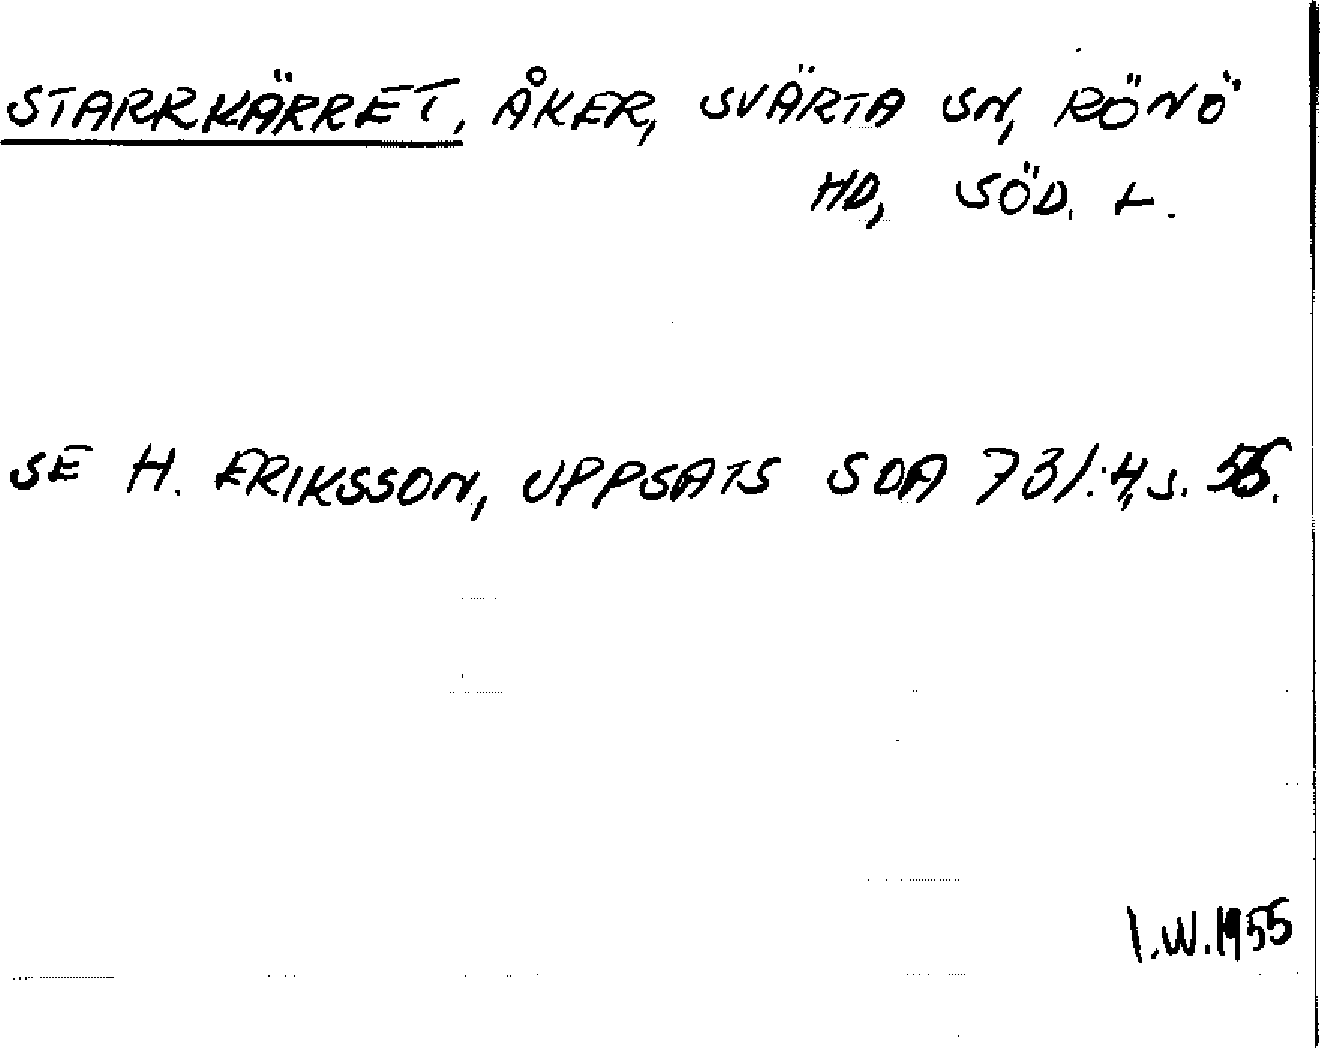 STARRKÄRRET, ÅKER, SVÄRTA SN, RÖNÖ
HD, SÖD. L.
SE H. ERIKSSON, UPPSATS SOA 731:4, s.
I.W. 1955